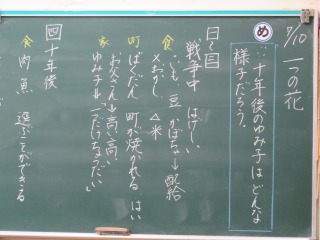 7/10 一つの花
め
十年後のゆみ子はどんな
様子だろう。
戦争中 はげしい
食 いも、豆、かぼちゃ→配給
×おかし △米
町 ばくだん 町が焼かれる はい
家 お父さん→高い高い
ゆみ子→「一つだけちょうだい」
四十年後
食 肉 魚 選ぶことができる